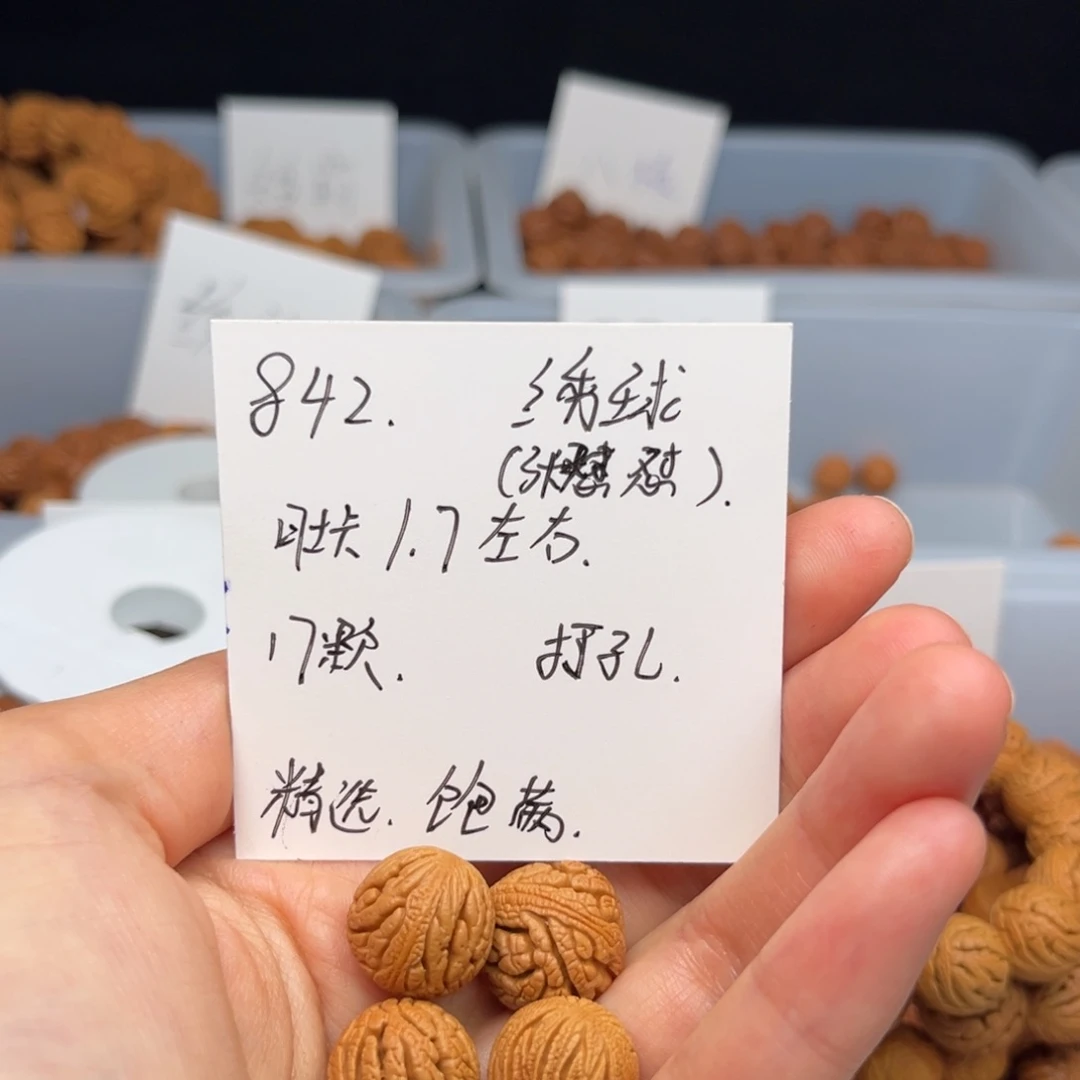 842. 绣球
肚卡 1.7 左右.
17颗. 打孔.
精选. 饱满.